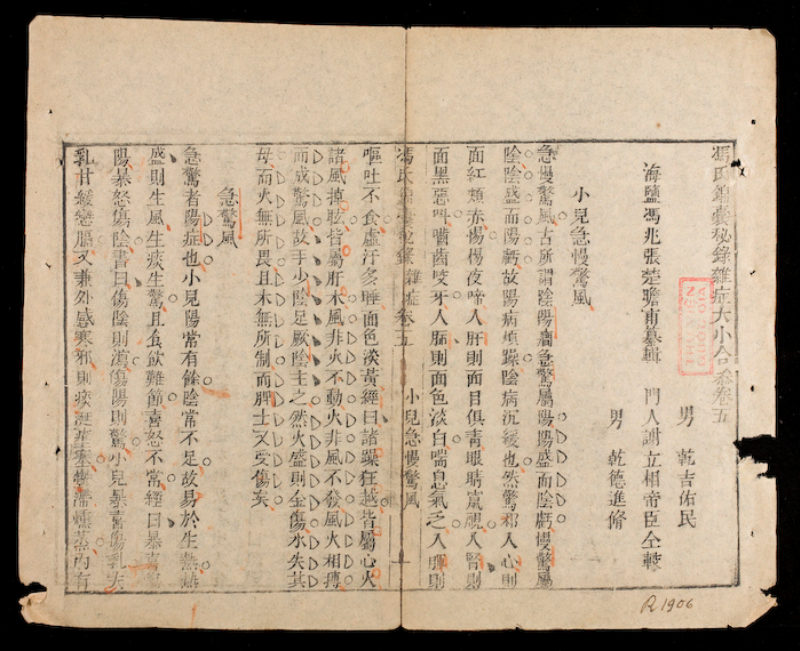 馮氏錦囊秘錄雜症大小合參卷五
海鹽馮兆張楚瞻甫纂輯 門人謝立相帝臣仝較
男 乾吉佑民
男 乾德進脩
小兒急慢驚風
急慢驚風古所謂陰陽癇急驚屬陽陽盛而陰虧慢驚屬
陰陰盛而陽虧故陽病煩躁陰病沉緩也然驚邪入心則
面紅頰赤惕惕夜啼入肝則面目俱青眼睛竄視入腎則
面黑惡叫嚙齒咬牙入肺則面色淡白喘息氣乏入脾則
馮氏錦囊秘錄 雜症卷五 小兒急慢驚風 一
嘔吐不食虛汗多睡面色淡黃經曰諸躁狂越皆屬心火
諸風掉眩皆屬肝木風非火不動火非風不發風火相搏
而成驚風故手少陰足厥陰主之然火盛則金傷水失其
母而火無所畏且木無所制而脾土又受傷矣
急驚風
急驚者陽症也小兒陽常有餘陰常不足故易於生熱熱
盛則生風生痰生驚且食飲難節喜怒不常經曰暴喜傷
陽暴怒傷陰書曰傷陰則瀉傷陽則驚小兒暴喜傷乳夫
乳甘緩戀膈又兼外感寒邪則痰涎壅塞鬱滯燻蒸內有
R1906